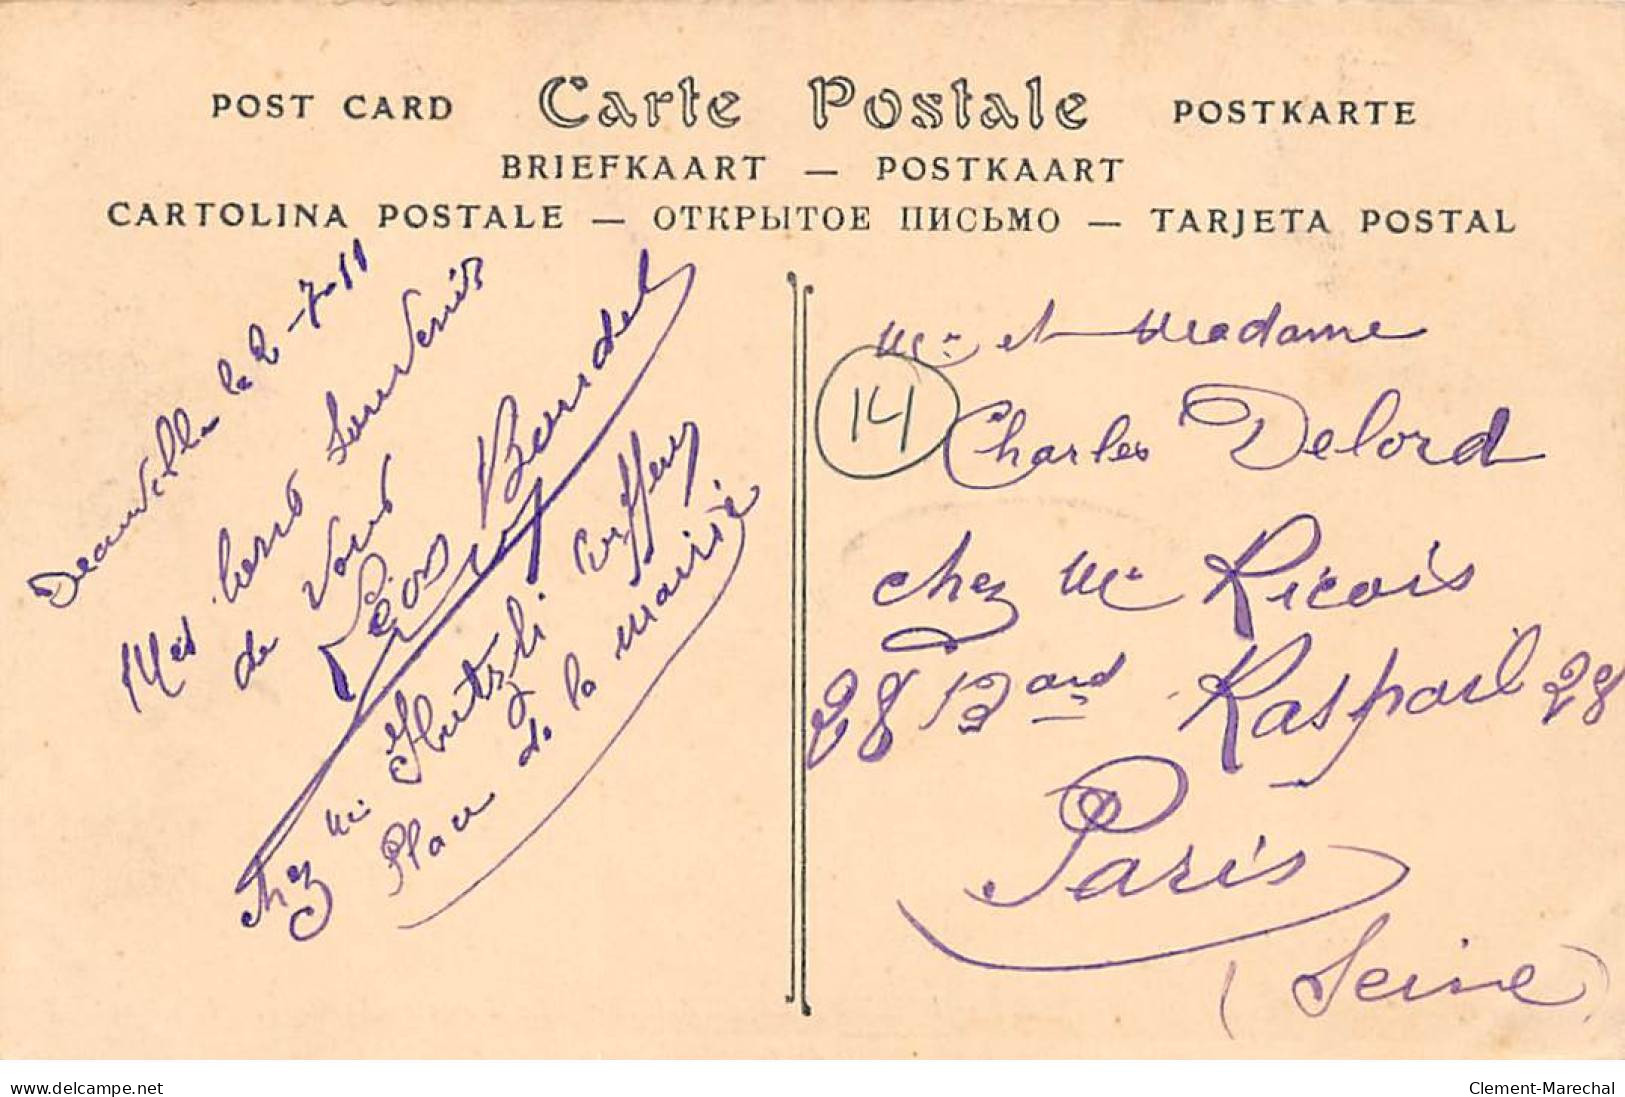 POST CARD Carte Postale POSTKARTE
BRIEFKAART — POSTKAART
CARTOLINA POSTALE — ОТКРЫТОЕ ПИСЬМО — TARJETA POSTAL
Deauville le 2-7-11
Mes bons souvenirs
de vous
Léon
chez Mr Hutzli Coiffeur
Place de la mairie
14
Mr et Madame
Charles Delord
chez Mr Ricois
28 Bard Raspail 28
Paris
(Seine)
www.delcampe.net
Clement-Marechal